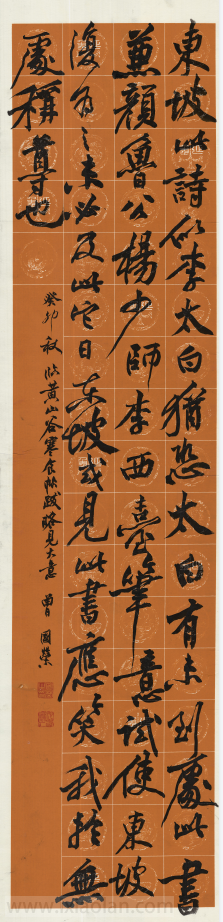 東坡此詩似李太白猶恐太白有未到處此書
兼顏魯公楊少師李西臺筆意試使東坡
復為之未必及此它日東坡或見此書應笑我於無
處稱尊也
癸卯秋臨黃山谷寒食帖跋略見大意 曾國榮